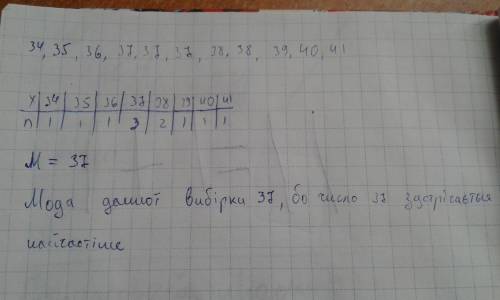 34, 35, 36, 37, 37, 37, 38, 38, 39, 40, 41
x 34 35 36 37 38 39 40 41
n 1 1 1 3 2 1 1 1
M = 37
Мода данної вибірки 37, бо число 37 зустрічається
найчастіше